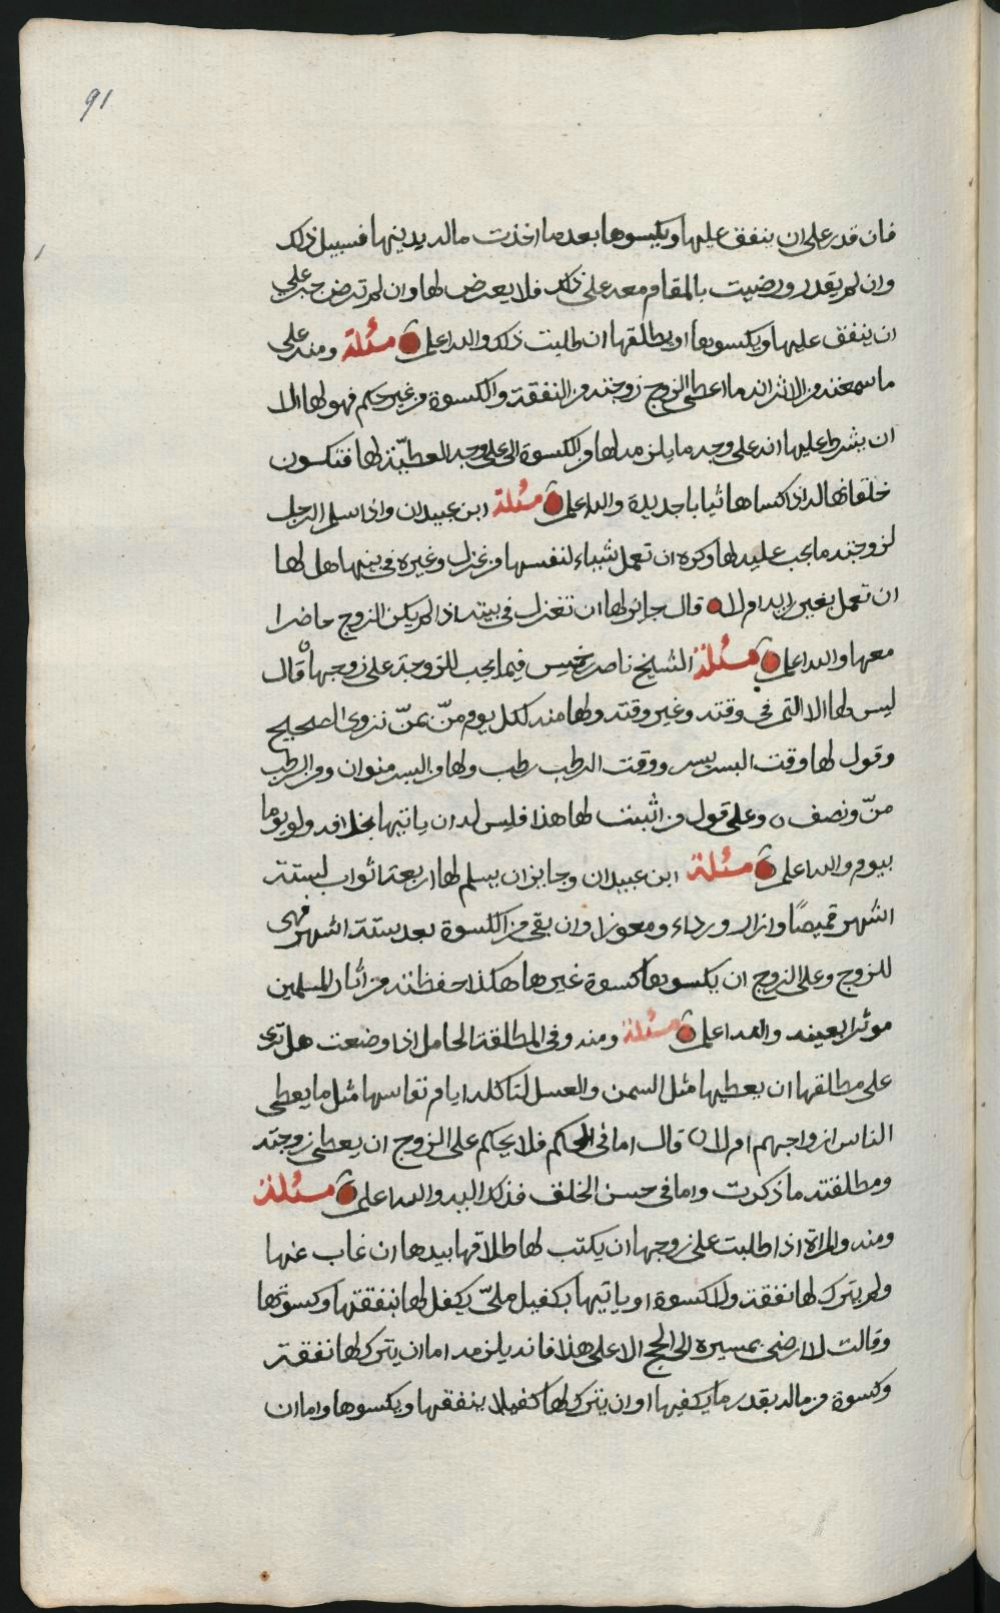 91
فان قدر على ان ينفق عليها ويكسوها بعد ما اخذت ماله بدينها فسبيل ذلك
وان لم يقدر ورضيت بالمقام معه على ذلك فلا يعرض لها وان لم ترض جبر على
ان ينفق عليها ويكسوها او يطلقها ان طلبت ذلك والله اعلم مسئلة ومنه على
ما سمعنه من الاثر انه ما اعطى الزوج زوجته من النفقة والكسوة من غير حكم فهو لها الا
ان يشرط عليها انه على وجه ما يلزمه لها من الكسوة لا على وجه العطيّة لها فتكون
خلقانها له اذا كساها ثيابا جديدة والله اعلم مسئلة ابن عبيدان واذا سلم الرجل
لزوجته ما يجب عليه لها وكره ان تعمل شيئاء لنفسها من غزل وغيره في بيتها هل لها
ان تعمل بغير رايه ام لا قال جائز لها ان تغزل في بيته اذا لم يكن الزوج حاضرا
معها والله اعلم مسئلة الشيخ ناصر بن خميس فيما يجب للزوجة على زوجها قال
ليس لها الا التمر في وقته وغير وقته ولها منه لكل يوم منّ بمنّ نزوى الصحيح
وقول لها وقت البسر بسر ووقت الرطب رطب ولها من البسر منوان ومن الرطب
منّ ونصف وعلى قول من اثبت لها هذا فليس له ان ياتيها بخلافه ولو يوما
بيوم والله اعلم مسئلة ابن عبيدان وجايز ان يسلم لها اربعة اثواب لستة
اشهر قميصًا وازار ورداء ومعوزا وان بقي من الكسوة بعد ستة اشهر فهى
للزوج وعلى الزوج ان يكسوها كسوة غيرها هكذا حفظته من اثار المسلمين
موثرا بعينه والله اعلم مسئلة ومنه وفي المطلقة الحامل اذا وضعت هل ترى
على مطلقها ان يعطيها مثل السمن والعسل لتاكله ايام نفاسها مثل ما يعطى
الناس ازواجهم ام لا قال اما في الحكم فلا يحكم على الزوج ان يعطى زوجته
ومطلقته ما ذكرت واما في حسن الخلق فذلك اليه والله اعلم مسئلة
ومنه والمراة اذا طلبت على زوجها ان يكتب لها طلاقها بيدها ان غاب عنها
ولم يترك لها نفقة ولا كسوة او ياتيها بكفيل مليّ يكفل لها بنفقتها وكسوتها
وقالت لا ارضى بمسيره الى الحج الا على هذا فانه يلزمه اما ان يترك لها نفقة
وكسوة من ماله بقدر ما يكفيها او ان يترك لها كفيلا ينفقها ويكسوها واما ان